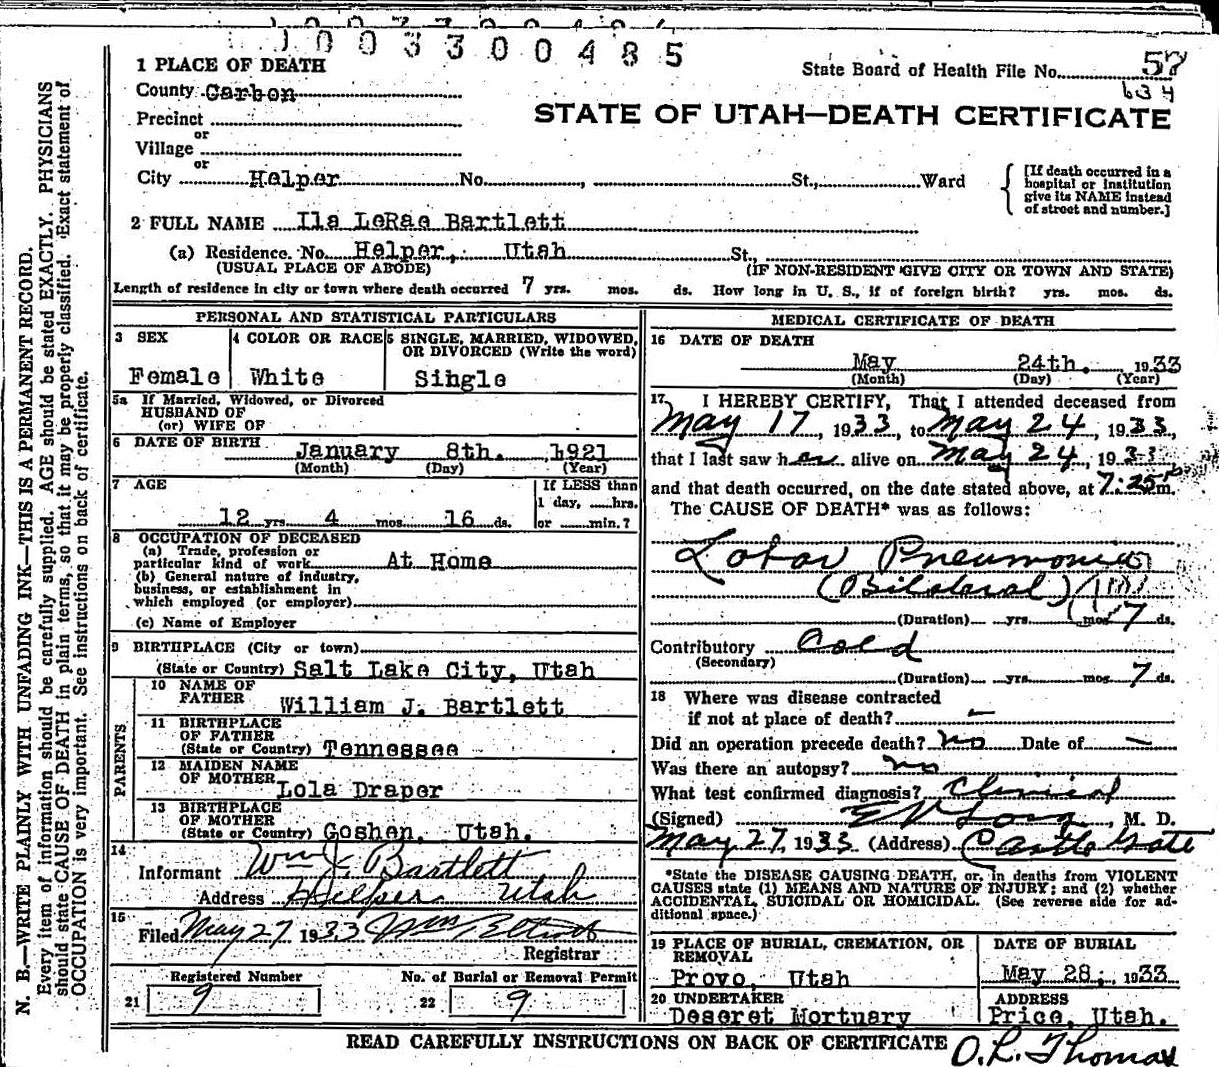 1003300485
1 PLACE OF DEATH
State Board of Health File No. 57
634
County Carbon
STATE OF UTAH—DEATH CERTIFICATE
Precinct
or
Village
or
City Helper No. , St., Ward
[If death occurred in a hospital or institution give its NAME instead of street and number.]
2 FULL NAME Ila LeRae Bartlett
(a) Residence. No. Helper, Utah St.,
(USUAL PLACE OF ABODE) (IF NON-RESIDENT GIVE CITY OR TOWN AND STATE)
Length of residence in city or town where death occurred 7 yrs. mos. ds. How long in U. S., if of foreign birth? yrs. mos. ds.
PERSONAL AND STATISTICAL PARTICULARS
3 SEX
Female
4 COLOR OR RACE
White
5 SINGLE, MARRIED, WIDOWED, OR DIVORCED (Write the word)
Single
5a If Married, Widowed, or Divorced
HUSBAND OF
(or) WIFE OF
6 DATE OF BIRTH January 8th. 1921
(Month) (Day) (Year)
7 AGE
12 yrs 4 mos 16 ds.
If LESS than
1 day, hrs.
or min.?
8 OCCUPATION OF DECEASED
(a) Trade, profession or
particular kind of work At Home
(b) General nature of industry,
business, or establishment in
which employed (or employer)
(c) Name of Employer
9 BIRTHPLACE (City or town)
(State or Country) Salt Lake City, Utah
PARENTS
10 NAME OF
FATHER William J. Bartlett
11 BIRTHPLACE
OF FATHER
(State or Country) Tennessee
12 MAIDEN NAME
OF MOTHER Lola Draper
13 BIRTHPLACE
OF MOTHER
(State or Country) Goshen, Utah.
14
Informant Wm J. Bartlett
Address Helper Utah
15
Filed May 27 1933 Wm
Registrar
Registered Number
21 9
No. of Burial or Removal Permit
22 9
MEDICAL CERTIFICATE OF DEATH
16 DATE OF DEATH
May 24th. 1933
(Month) (Day) (Year)
17 I HEREBY CERTIFY, That I attended deceased from
May 17, 1933, to May 24, 1933,
that I last saw her alive on May 24, 1933
and that death occurred, on the date stated above, at 7:25 p m.
The CAUSE OF DEATH* was as follows:
Lobar Pneumonia
(Bilateral)
(Duration) yrs. mos 7 ds.
Contributory Cold
(Secondary)
(Duration) yrs mos 7 ds.
18 Where was disease contracted
if not at place of death? —
Did an operation precede death? no Date of —
Was there an autopsy? no
What test confirmed diagnosis? Clinical
(Signed) , M. D.
May 27, 1933 (Address) Castle Gate
*State the DISEASE CAUSING DEATH, or, in deaths from VIOLENT
CAUSES state (1) MEANS AND NATURE OF INJURY; and (2) whether
ACCIDENTAL, SUICIDAL OR HOMICIDAL. (See reverse side for ad-
ditional space.)
19 PLACE OF BURIAL, CREMATION, OR
REMOVAL
Provo, Utah
DATE OF BURIAL
May 28, 1933
20 UNDERTAKER
Deseret Mortuary
ADDRESS
Price, Utah.
READ CAREFULLY INSTRUCTIONS ON BACK OF CERTIFICATE
O. L. Thomas
N. B.—WRITE PLAINLY WITH UNFADING INK—THIS IS A PERMANENT RECORD.
Every item of information should be carefully supplied. AGE should be stated EXACTLY. PHYSICIANS
should state CAUSE OF DEATH in plain terms, so that it may be properly classified. Exact statement of
OCCUPATION is very important. See instructions on back of certificate.